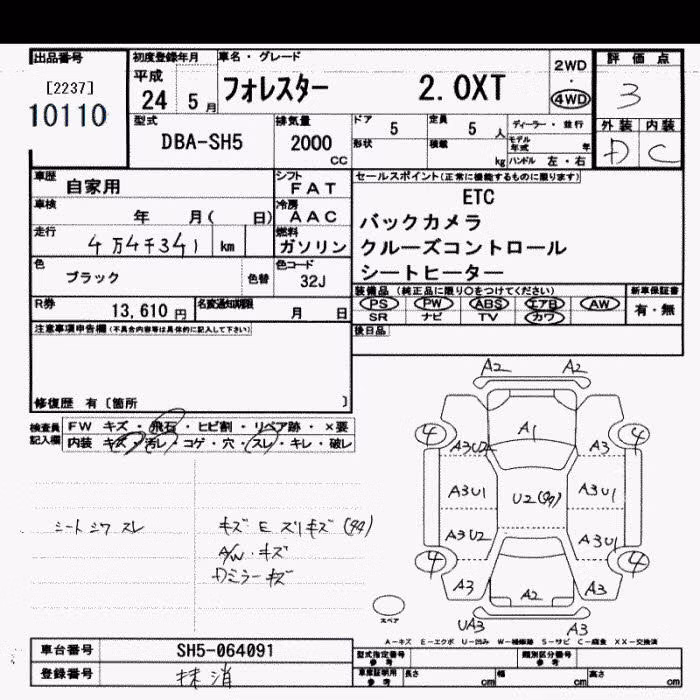 出品番号
[2237]
10110
初度登録年月
平成
24 5月
車名・グレード
フォレスター 2.0XT
2WD
・
4WD
評価点
3
外装 内装
D C
型式
DBA-SH5
排気量
2000
CC
ドア 5
形状
定員 5 人
積載 kg
ディーラー・並行
モデル年式 年
ハンドル 左・右
車歴 自家用
シフト
FAT
車検 年 月( 日)
冷房
AAC
走行 4万4千341 km
燃料
ガソリン
色 ブラック 色替
色コード
32J
R券 13,610円
名変通知期限 月 日
セールスポイント(正常に機能するものに限ります)
ETC
バックカメラ
クルーズコントロール
シートヒーター
装備品(純正品に限り○をつけてください)
PS PW ABS エアB AW
SR ナビ TV カワ
新車保証書
有・無
後日品
注意事項申告欄(不具合内容等は具体的に記入して下さい)
修復歴 有〔箇所 〕
検査員
記入欄
FW キズ・飛石・ヒビ割・リペア跡・×要
内装 キズ・汚レ・コゲ・穴・スレ・キレ・破レ
シートシワ スレ
キズ E ズリキズ
A/W キズ
Dミラーキズ
A2 A2
4 4
A1
A3U2 A3
A3U1 U2 A3U1
A3U2 A3U1
4 4
A3 A2 A3
UA3 A3
スペア
A-キズ E-エクボ U-凹み W-補修跡 S-サビ C-腐食 XX-交換済
車台番号 SH5-064091
登録番号 抹消
型式指定番号
参考
類別区分番号
参考
車庫証明用
参考
長さ cm 幅 cm 高さ cm